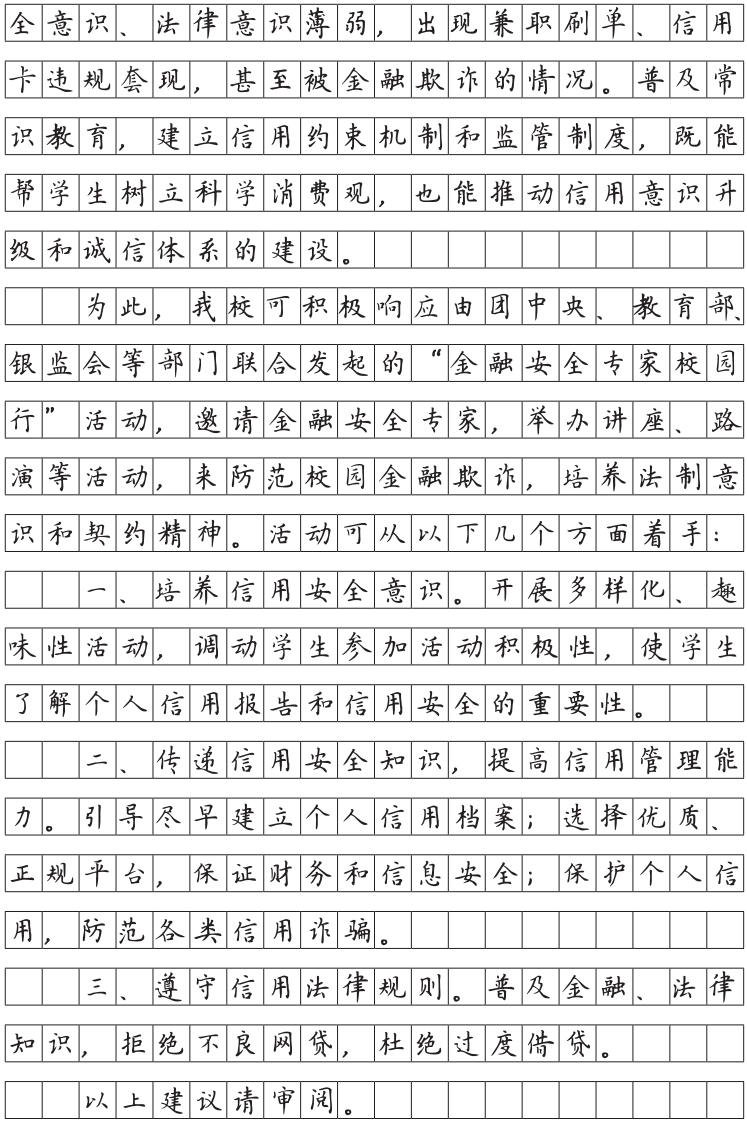 全意识、法律意识薄弱，出现兼职刷单、信用
卡违规套现，甚至被金融欺诈的情况。普及常
识教育，建立信用约束机制和监管制度，既能
帮学生树立科学消费观，也能推动信用意识升
级和诚信体系的建设。
为此，我校可积极响应由团中央、教育部、
银监会等部门联合发起的“金融安全专家校园
行”活动，邀请金融安全专家，举办讲座、路
演等活动，来防范校园金融欺诈，培养法制意
识和契约精神。活动可从以下几个方面着手：
一、培养信用安全意识。开展多样化、趣
味性活动，调动学生参加活动积极性，使学生
了解个人信用报告和信用安全的重要性。
二、传递信用安全知识，提高信用管理能
力。引导尽早建立个人信用档案；选择优质、
正规平台，保证财务和信息安全；保护个人信
用，防范各类信用诈骗。
三、遵守信用法律规则。普及金融、法律
知识，拒绝不良网贷，杜绝过度借贷。
以上建议请审阅。